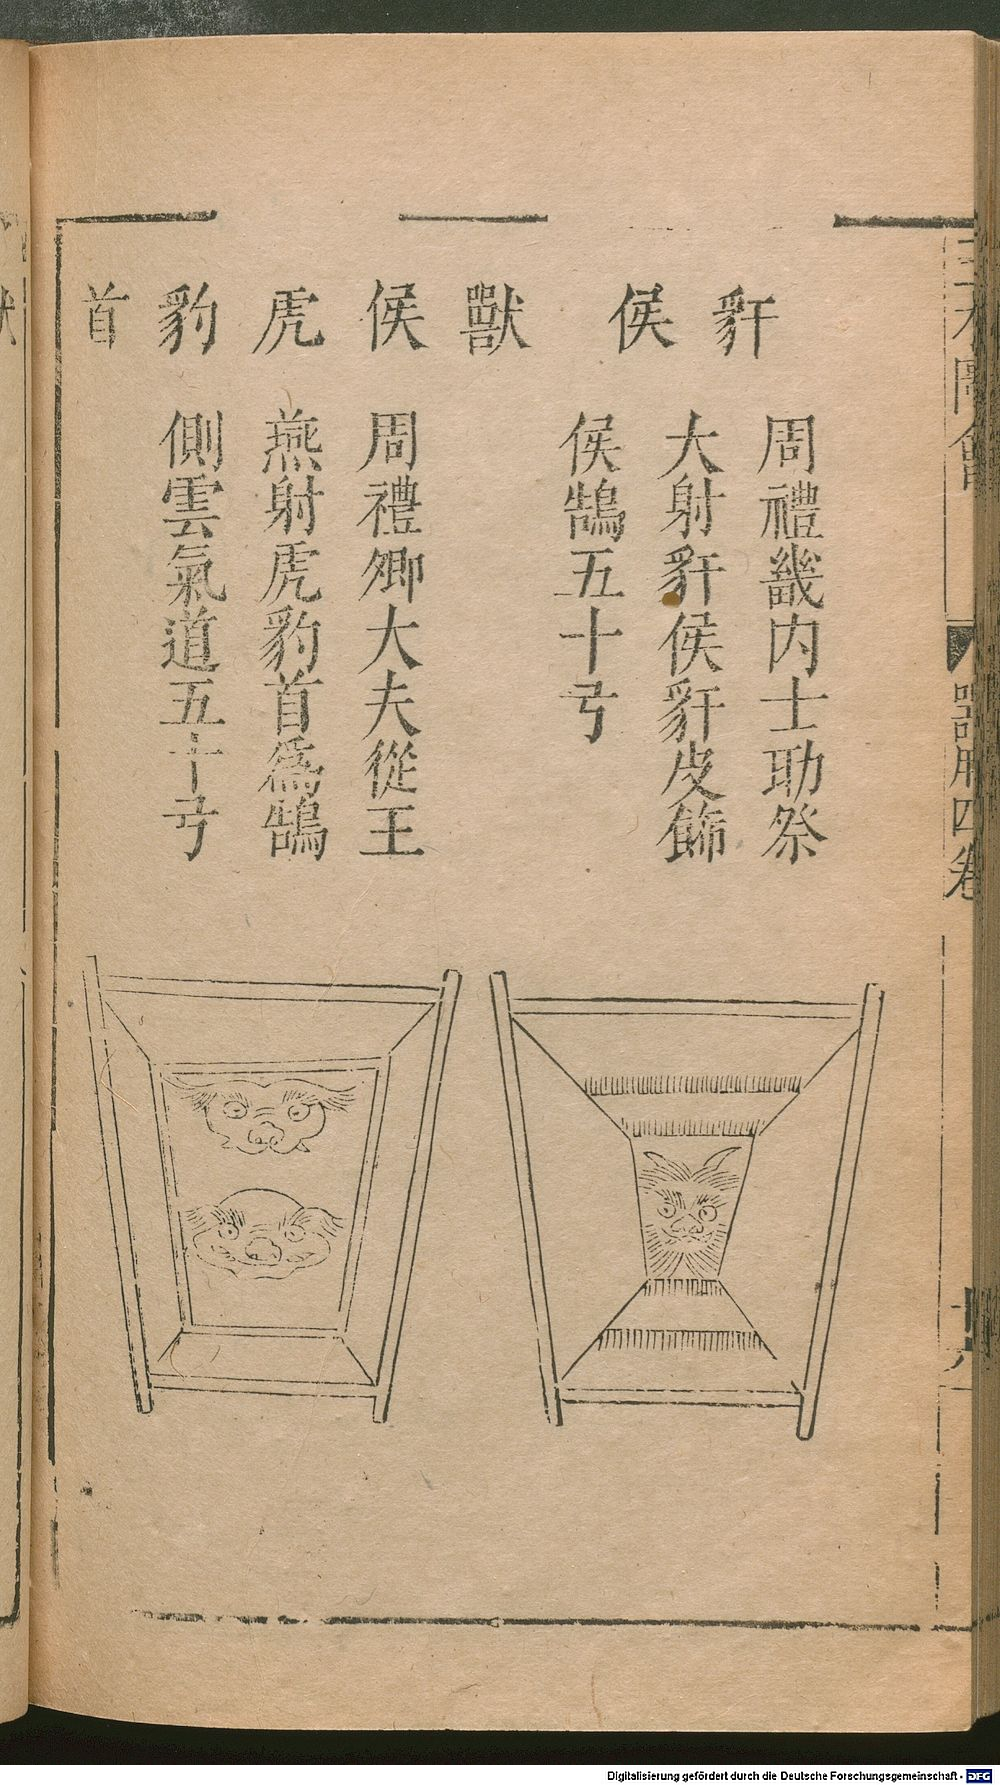 豻侯
周禮畿内士助祭
大射豻侯豻皮飾
侯鵠五十弓
獸侯虎豹首
周禮卿大夫從王
燕射虎豹首爲鵠
側雲氣道五十弓
器用四卷
Digitalisierung gefördert durch die Deutsche Forschungsgemeinschaft - DFG